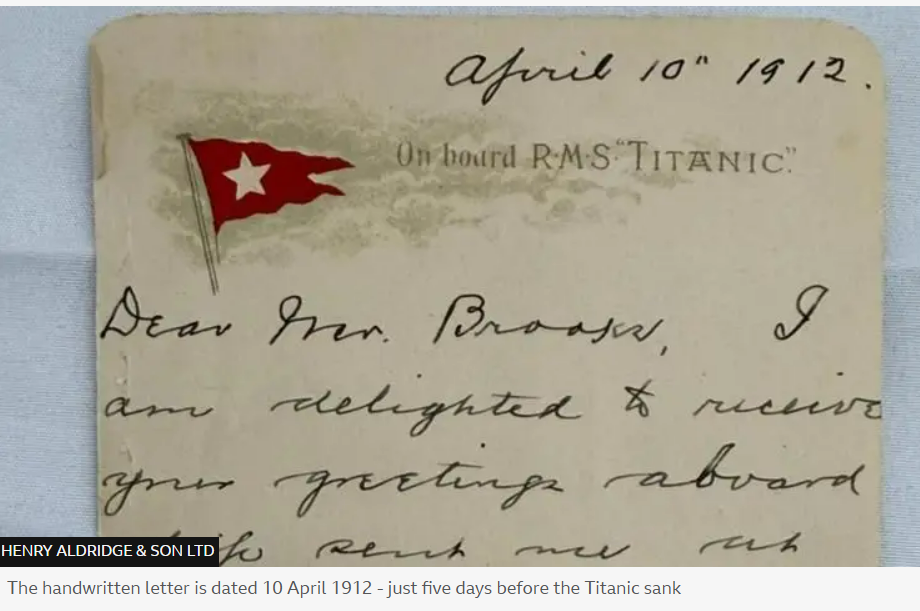 April 10" 1912.
On board R·M·S "TITANIC".
Dear Mr. Brooks, I
am delighted to receive
your greetings aboard
sent me at
HENRY ALDRIDGE & SON LTD
The handwritten letter is dated 10 April 1912 - just five days before the Titanic sank